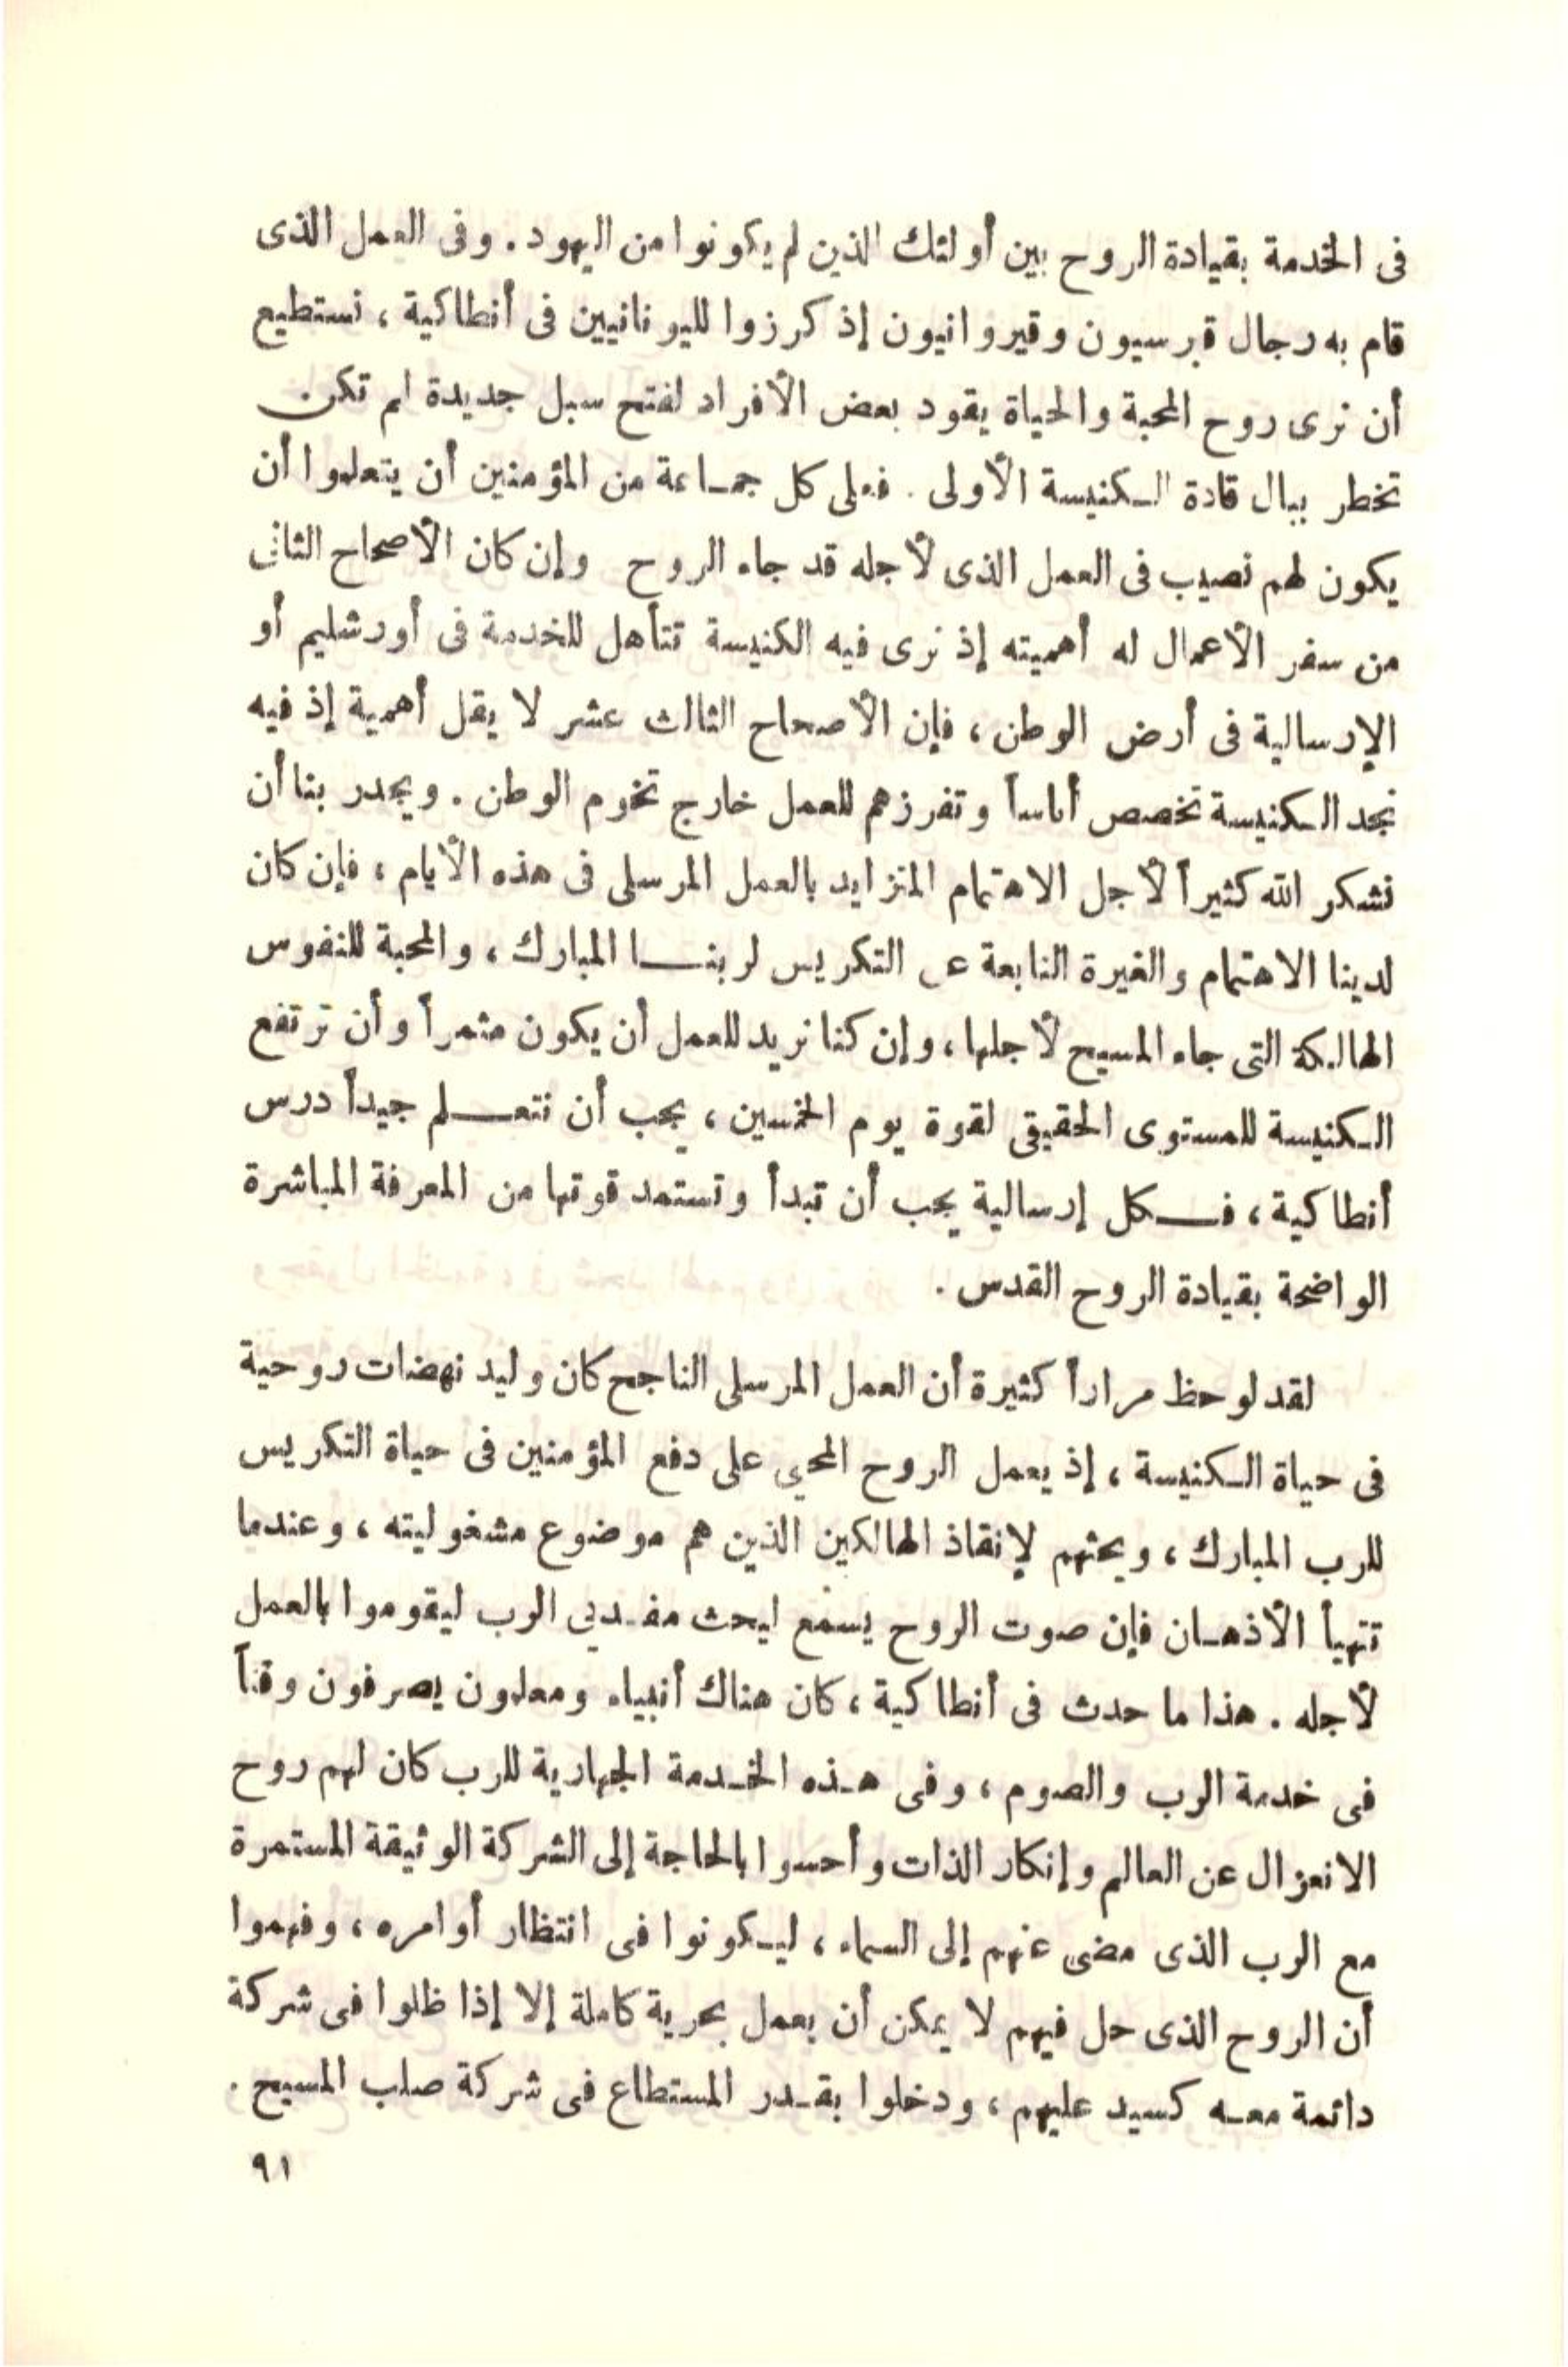 فى الخدمة بقيادة الروح بين أولئك الذين لم يكونوا من اليهود. وفى العمل الذى
قام به رجال قبرسيون وقيروانيون إذ كرزوا لليونانيين فى أنطاكية، نستطيع
أن نرى روح المحبة والحياة يقود بعض الأفراد لفتح سبل جديدة لم تكن
تخطر ببال قادة الكنيسة الأولى. فعلى كل جماعة من المؤمنين أن يتعلموا أن
يكون لهم نصيب فى العمل الذى لأجله قد جاء الروح وإن كان الأصحاح الثانى
من سفر الأعمال له أهميته إذ نرى فيه الكنيسة تتأهل للخدمة فى أورشليم أو
الإرسالية فى أرض الوطن، فإن الأصحاح الثالث عشر لا يقل أهمية إذ فيه
نجد الكنيسة تخصص أناساً وتفرزهم للعمل خارج تخوم الوطن. ويجدر بنا أن
نشكر الله كثيراً لأجل الاهتمام المتزايد بالعمل المرسلى فى هذه الأيام، فإن كان
لدينا الاهتمام والغيرة النابعة عن التكريس لربنا المبارك، والمحبة للنفوس
الهالكة التى جاء المسيح لأجلها، وإن كنا نريد للعمل أن يكون مثمراً وأن ترتفع
الكنيسة للمستوى الحقيقى لقوة يوم الخمسين، يجب أن نتعلم جيداً درس
أنطاكية، فكل إرسالية يجب أن تبدأ وتستمد قوتها من المعرفة المباشرة
الواضحة بقيادة الروح القدس.
لقد لوحظ مراراً كثيرة أن العمل المرسلى الناجح كان وليد نهضات روحية
فى حياة الكنيسة، إذ يعمل الروح المحيى على دفع المؤمنين فى حياة التكريس
للرب المبارك، ويحثهم لإنقاذ الهالكين الذين هم موضوع مشغوليته، وعندما
تتهيأ الأذهان فإن صوت الروح يسمع ليحث مفديى الرب ليقوموا بالعمل
لأجله. هذا ما حدث فى أنطاكية، كان هناك أنبياء ومعلمون يصرفون وقتاً
فى خدمة الرب والصوم، وفى هذه الخدمة الجهارية للرب كان لهم روح
الانعزال عن العالم وإنكار الذات وأحسوا بالحاجة إلى الشركة الوثيقة المستمرة
مع الرب الذى مضى عنهم إلى السماء، ليكونوا فى انتظار أوامره، وفهموا
أن الروح الذى حل فيهم لا يمكن أن يعمل بحرية كاملة إلا إذا ظلوا فى شركة
دائمة معه كسيد عليهم، ودخلوا بقدر المستطاع فى شركة صلب المسيح.
٩١